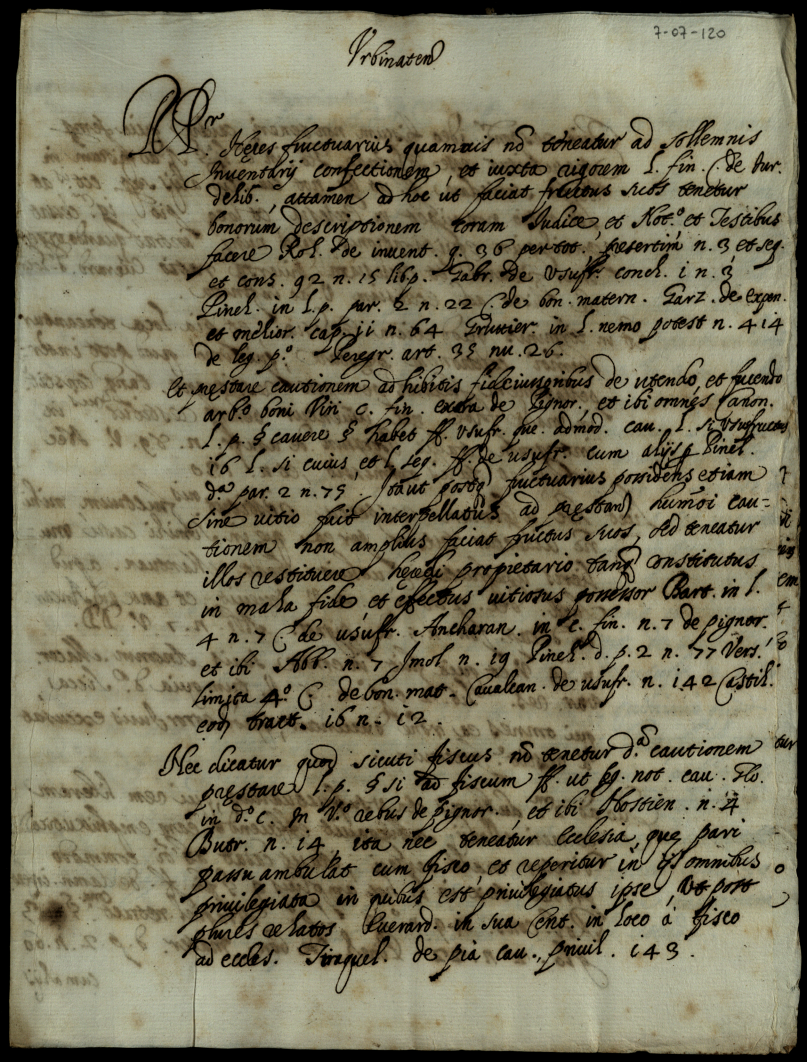 7-07-120
Urbinaten
Hęres fructuarius quamvis nō teneatur ad sollemnis
Inventarij confectionem, et iuxta rigorem l. fin. C. de iur.
delib., attamen ad hoc ut faciat fructus suos tenetur
bonorum descriptionem coram Iudice, et Not.º et Testibus
facere Rol. de invent. q. 36 per tot. presertim n. 3 et seq.
et cons. 92 n. 15 lib. p. Gabr. de Usufr. concl. 1 n. 3
Pinel. in l. p. par. 2 n. 22 C. de bon. matern. Garz. de expen.
et melior. cap. 11 n. 64 in l. nemo potest n. 414
de leg. p.º Peregr. art. 35 nu. 26.
Et pręstare cautionem adhibitis fideiussoribus de utendo, et fruendo
arb.º boni Viri c. fin. extra de Pignor., et ibi omnes Canon.
l. p. § cavere § habet ff. usufr. que. admod. cau. l. si Usufructus
16 l. si cuius, et l. seq. ff. de usufr. cum alijs Pinel.
d.ª par. 2 n. 75. Ita ut postq fructuarius possidens etiam
sine vitio fuit interpellatus ad pręstand humōi cau=
tionem non amplius faciat fructus suos, sed teneatur
illos restituere hęredi proprietario tanq constitutus
in mala fide et effectus vitiosus possessor Bart. in l.
4 n. 7 C. de usufr. Ancharan. in c. fin. n. 7 de pignor.
et ibi Abb. n. 7 Imol. n. 19 Pinel. d. p. 2 n. 77 Vers.
limita 4.º C. de bon. mat. Cavalcan. de usufr. n. 142 Castil.
eod tract. 16 n. 12.
Nec dicatur quod sicuti fiscus nō tenetur d.ª cautionem
pręstare l. p. § si ad fiscum ff. ut leg. not. cau. Glo.
in d.º c. fin V.º rebus de pignor., et ibi Hostien. n. 4
Butr. n. 14, ita nec teneatur Ecclesia, quę pari
passu ambulat cum fisco, et reperitur in omnibus
privilegiata in quibus est privilegiatus ipse, Ut post
plures relatos Everard. in sua Cent. in loco á fisco
ad eccles. Tiraquel. de pia cau. privil. 143.